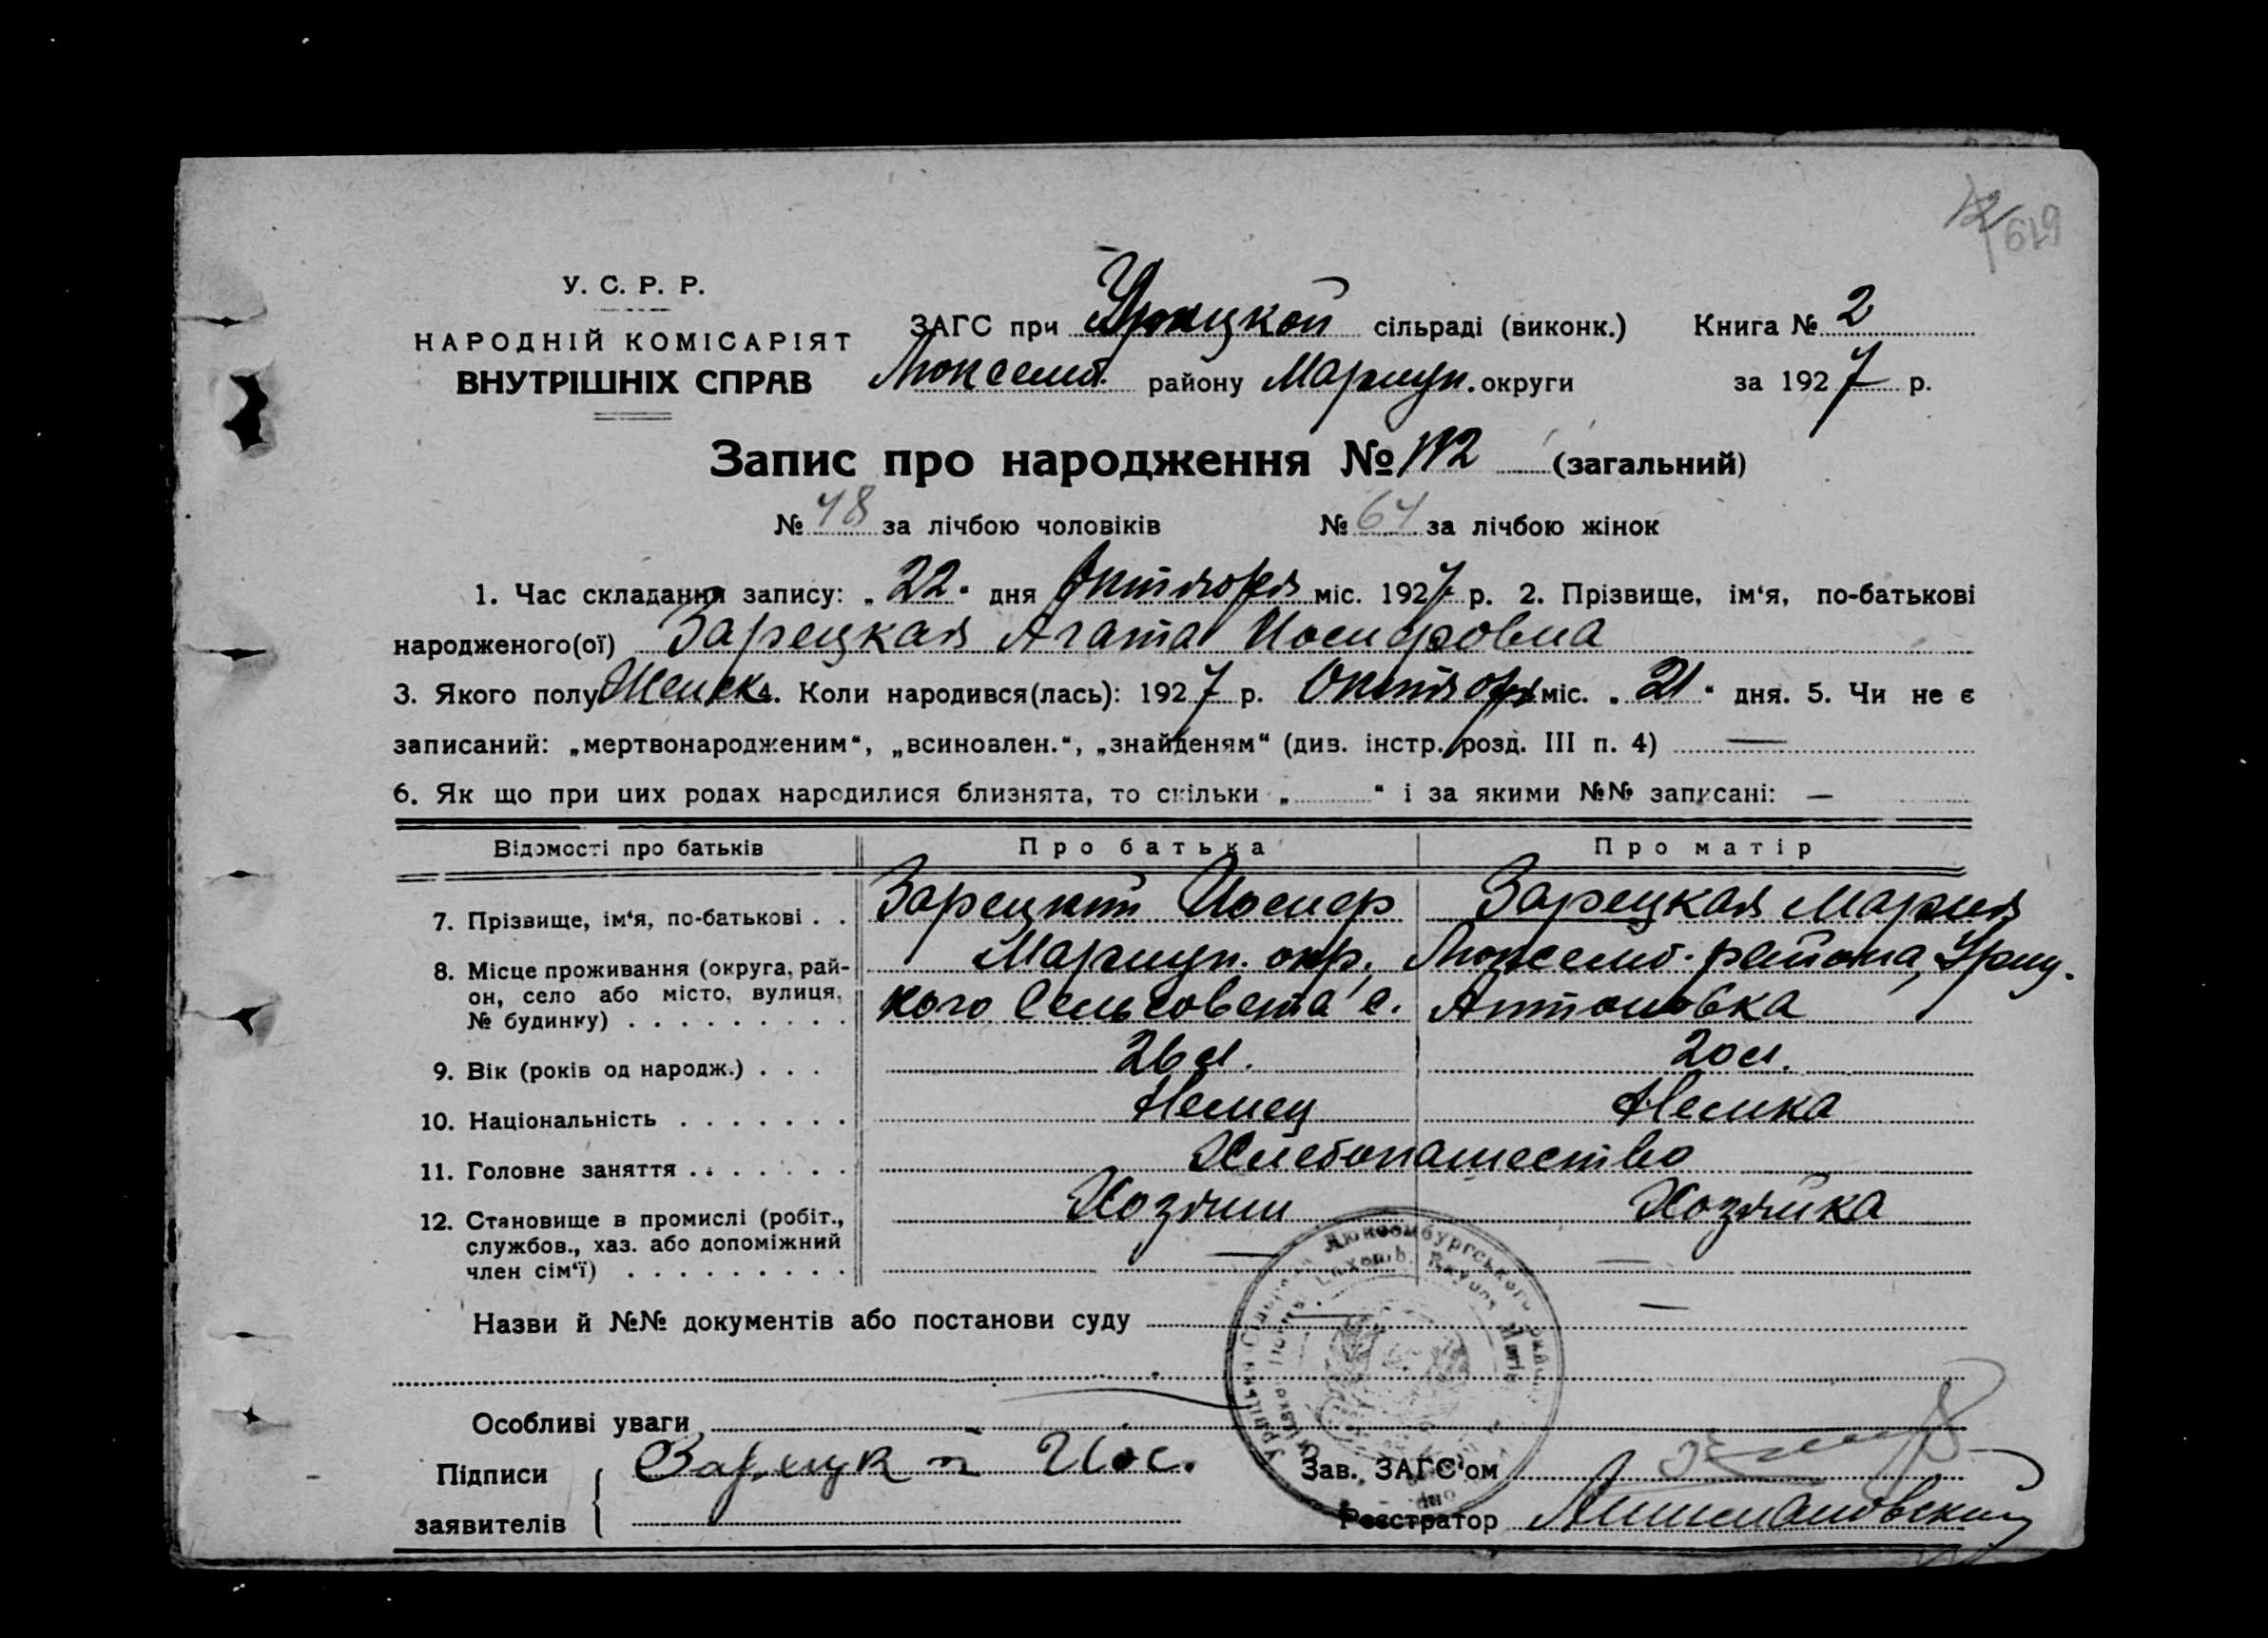 619
У. С. Р. Р.
НАРОДНІЙ КОМІСАРІЯТ
ВНУТРІШНІХ СПРАВ
ЗАГС при Урицкой сільраді (виконк.) Книга № 2
Люксемб. району Мариуп. округи за 1927 р.
Запис про народження № 112 (загальний)
№ 48 за лічбою чоловіків № 64 за лічбою жінок
1. Час складання запису: „22“ дня Октября міс. 1927 р. 2. Прізвище, ім‘я, по-батькові
народженого(ої) Зарецкая Агата Иосифовна
3. Якого полу Женск. 4. Коли народився(лась): 1927 р. Октября міс. „21“ дня. 5. Чи не є
записаний: „мертвонародженим“, „всиновлен.“, „знайденям“ (див. інстр. розд. III п. 4) —
6. Як що при цих родах народилися близнята, то скільки „ “ і за якими №№ записані: —
Відомості про батьків Про батька Про матір
7. Прізвище, ім‘я, по-батькові . . Зарецкий Иосиф Зарецкая Мария
8. Місце проживання (округа, рай- Мариуп. окр. Люксемб. района, Уриц.
он, село або місто, вулиця, кого Сельсовета с. Антоновка
№ будинку) . . . . . . . . .
9. Вік (років од народж.) . . . 26 л. 20 л.
10. Національність . . . . . . . Немец Немка
11. Головне заняття . . . . . . . Хлебопашество
12. Становище в промислі (робіт., Хозяин Хозяйка
службов., хаз. або допоміжний — —
член сім‘ї) . . . . . . . . .
Назви й №№ документів або постанови суду — —
Особливі уваги
Підписи Зарецкй Иос. Зав. ЗАГС‘ом
заявителів Реєстратор
Люксембургського